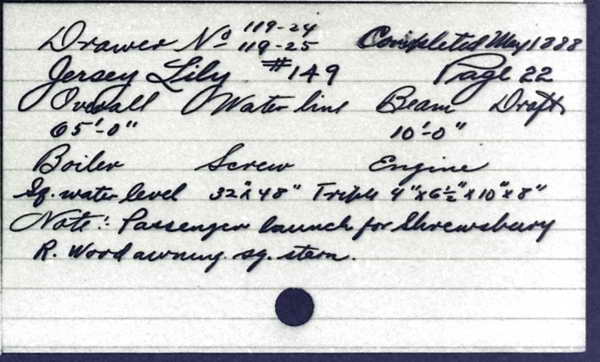 Drawer No 119-24
119-25 Completed May 1888
Jersey Lily #149 Page 22
Overall Water line Beam Draft
65'-0" 10'-0"
Boiler Screw Engine
Sq. water level 32"x48" Triple 4"x6½"x10"x8"
Note: Passenger launch for Shrewsbury
R. Wood awning. sq. stern.